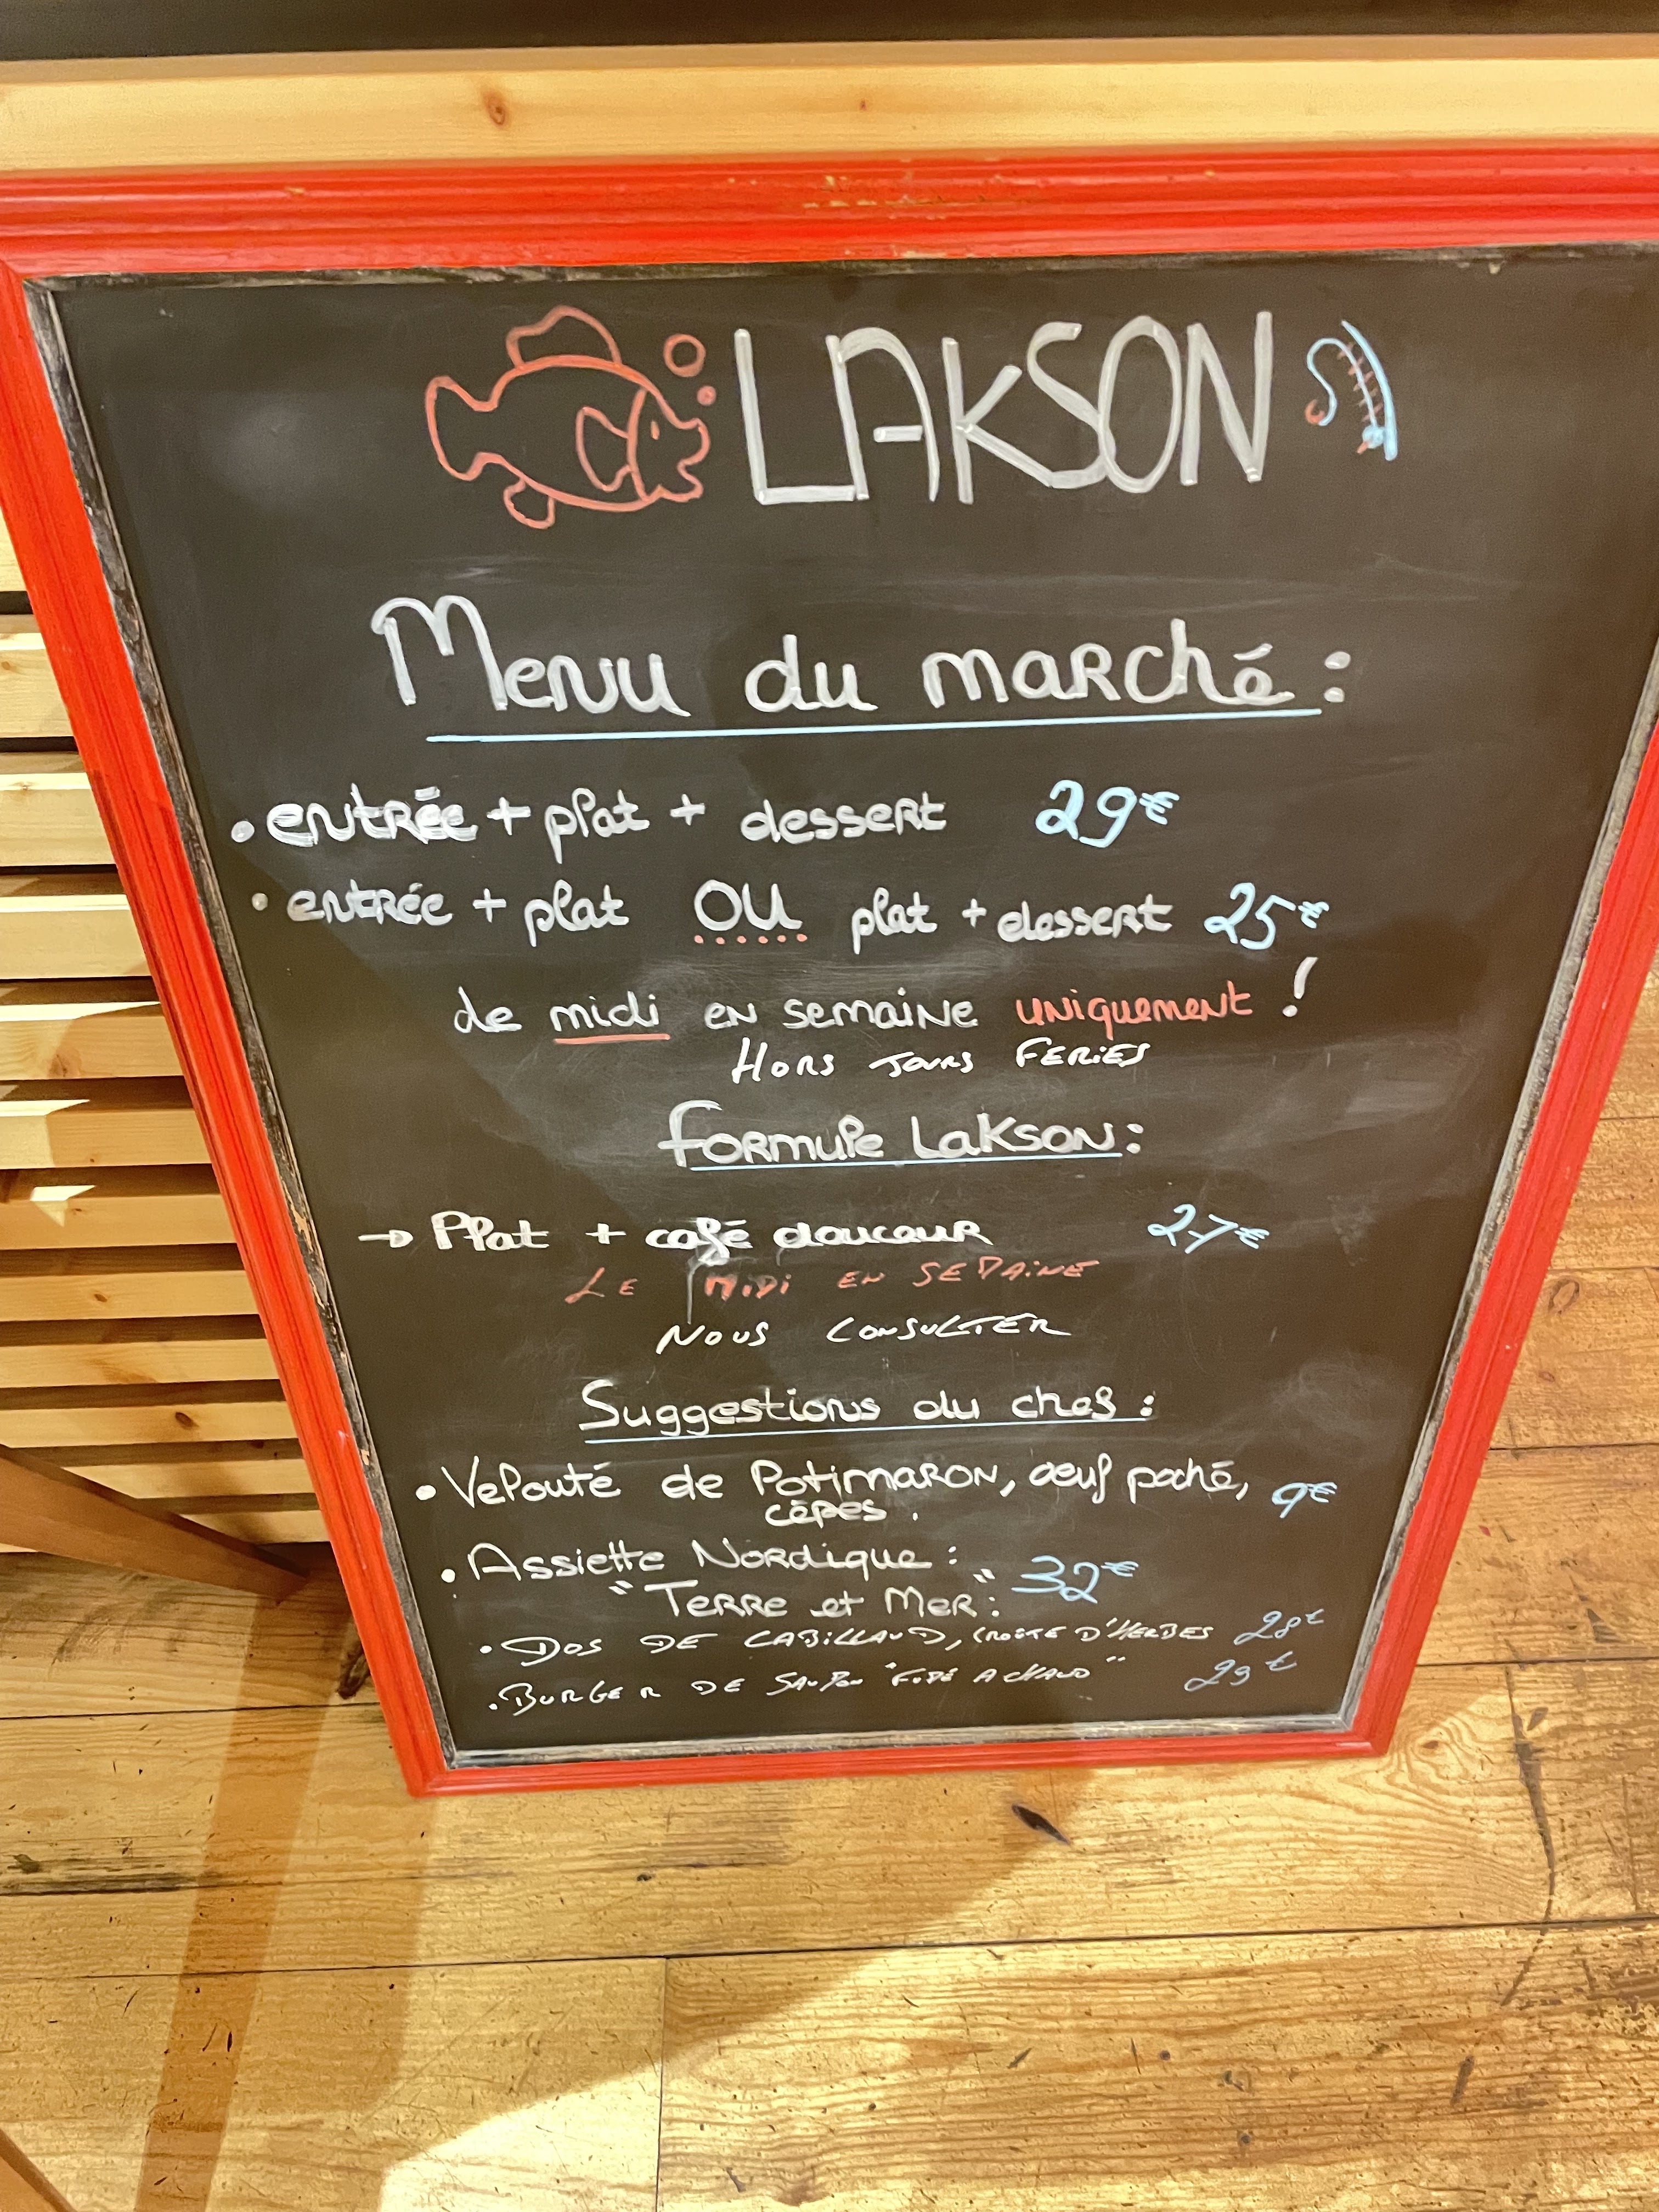 LAKSON
Menu du marché :
• entrée + plat + dessert 29€
• entrée + plat OU plat + dessert 25€
de midi en semaine uniquement !
HORS JOURS FERIES
Formule Lakson :
→ Plat + café douceur 27€
LE MIDI EN SEMAINE
NOUS CONSULTER
Suggestions du chef :
• Velouté de Potimaron, oeuf poché, 9€
cèpes.
• Assiette Nordique :
"Terre et Mer" : 32€
• DOS DE CABILLAUD, CROÛTE D'HERBES 28€
• BURGER DE SAUMON "FUMÉ A CHAUD" 29€